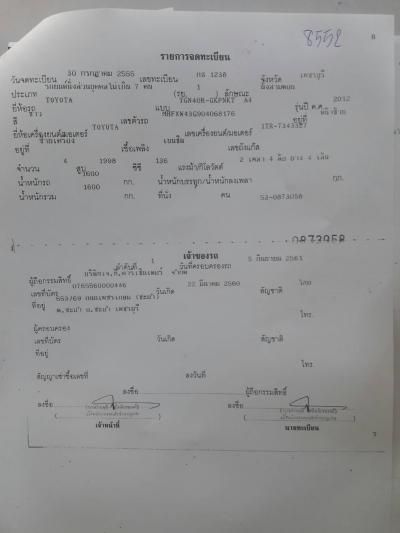 8552
8
รายการจดทะเบียน
วันจดทะเบียน 30 กรกฎาคม 2555 เลขทะเบียน กธ 1238 จังหวัด เพชรบุรี
ประเภท รถยนต์นั่งส่วนบุคคลไม่เกิน 7 คน (รย. 1 ) ลักษณะ
ยี่ห้อรถ TOYOTA แบบ TGN40R-GKPNKT A4 รุ่นปี ค.ศ. 2012
สี ขาว เลขตัวรถ MHFXW43G904068176 อยู่ที่
ยี่ห้อเครื่องยนต์มอเตอร์ TOYOTA เลขเครื่องยนต์มอเตอร์ 1TR-7343327
อยู่ที่ เชื้อเพลิง เบนซิน เลขถังแก๊ส
จำนวน 4 สูบ 1998 ซีซี 136 แรงม้า/กิโลวัตต์ 2 เพลา 4 ล้อ ยาง 4 เส้น
น้ำหนักรถ 1600 กก. น้ำหนักบรรทุก/น้ำหนักลงเพลา กก.
น้ำหนักรวม 1600 กก. ที่นั่ง คน 53-0873058
0873058
เจ้าของรถ
ลำดับที่ 1 วันที่ครอบครองรถ 5 กันยายน 2561
ผู้ถือกรรมสิทธิ์
เลขที่บัตร 0765560000446 วันเกิด 22 มีนาคม 2560 สัญชาติ ไทย
ที่อยู่ 553/69 ถนนเพชรเกษม (ชะอำ)
ต.ชะอำ อ.ชะอำ เพชรบุรี โทร.
ผู้ครอบครอง
เลขที่บัตร วันเกิด สัญชาติ
ที่อยู่
โทร.
สัญญาเช่าซื้อเลขที่ ลงวันที่
ลงชื่อ ผู้ถือกรรมสิทธิ์
ลงชื่อ ลงชื่อ
เจ้าหน้าที่ นายทะเบียน